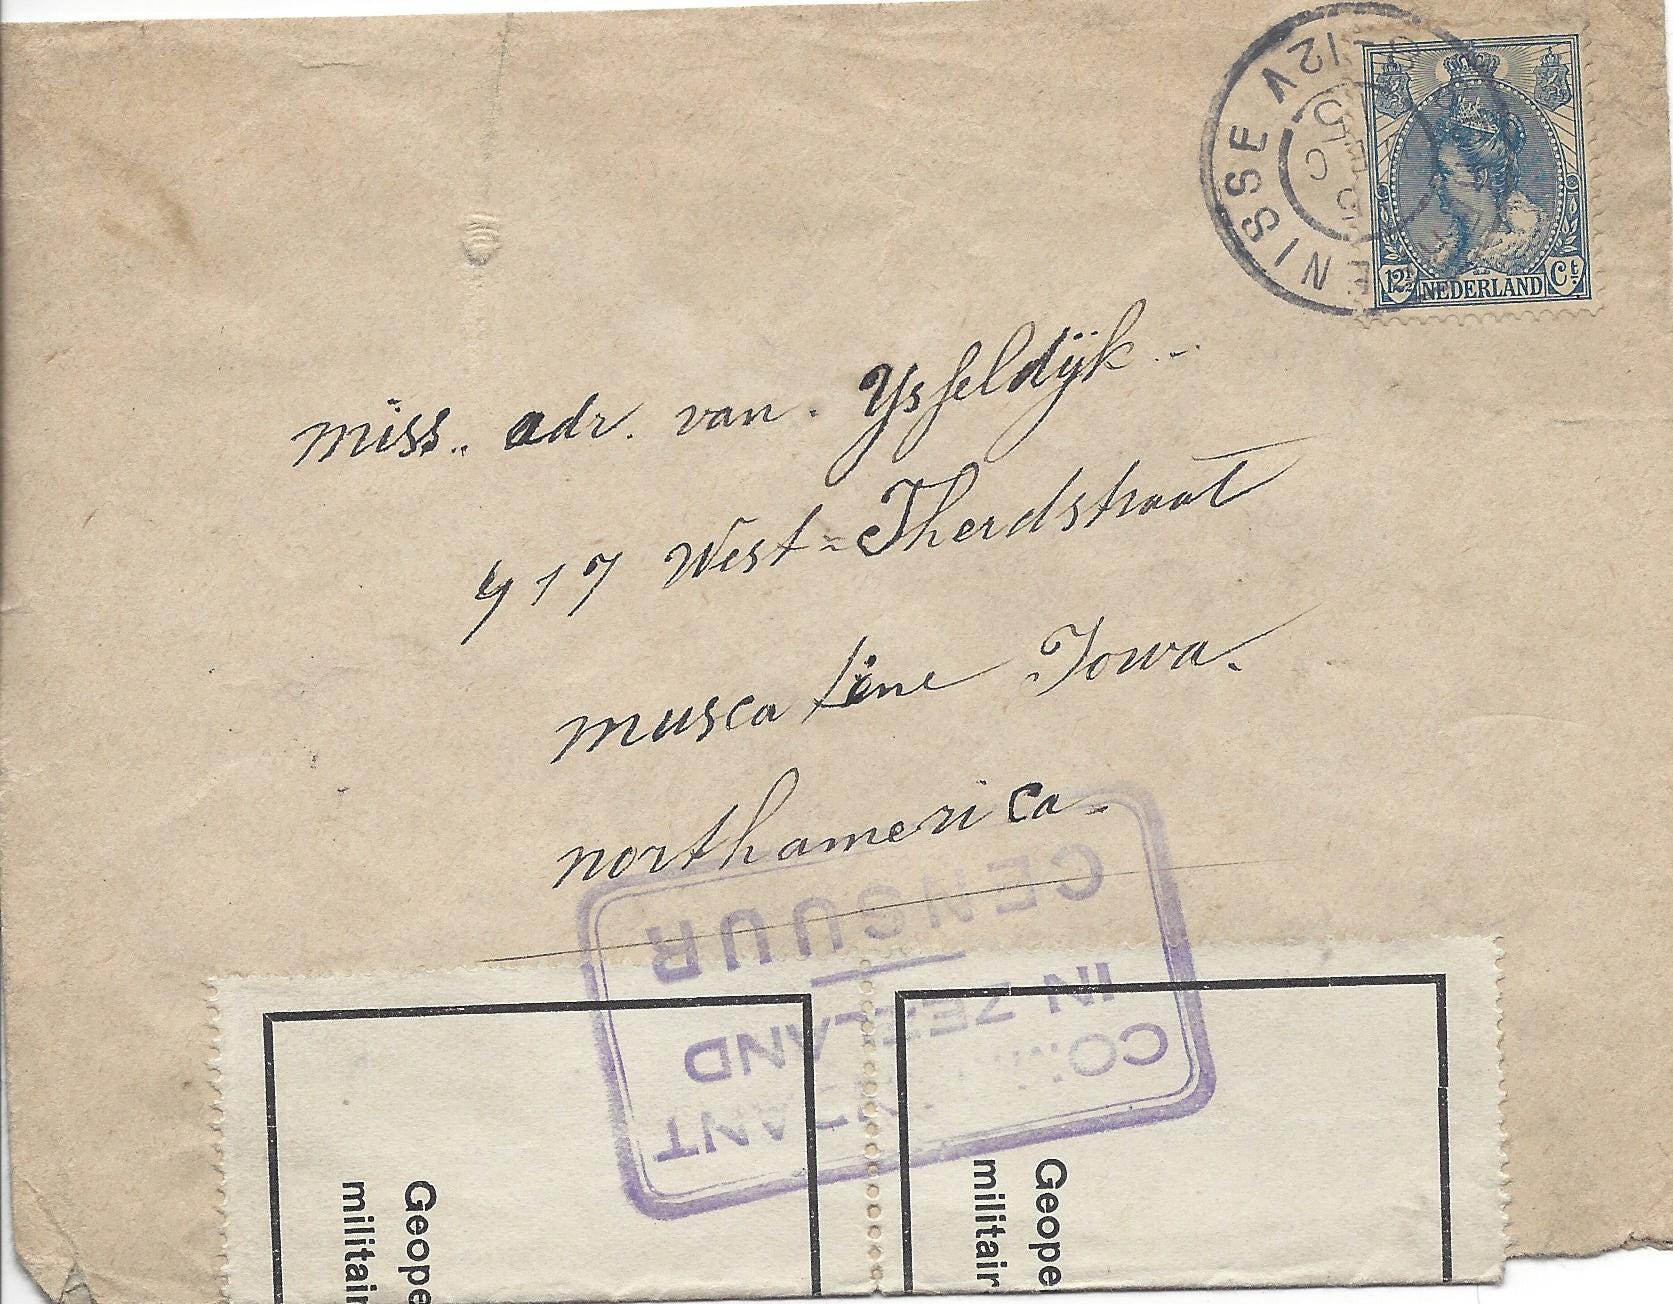 NISSE
12 V
12½ NEDERLAND Ct
miss. adr. van. Ysseldijk
417 West-Therdstraat
muscatine Iowa.
northamerica.
CENSUUR
IN ZEELAND
Geope
militair
Geope
militair